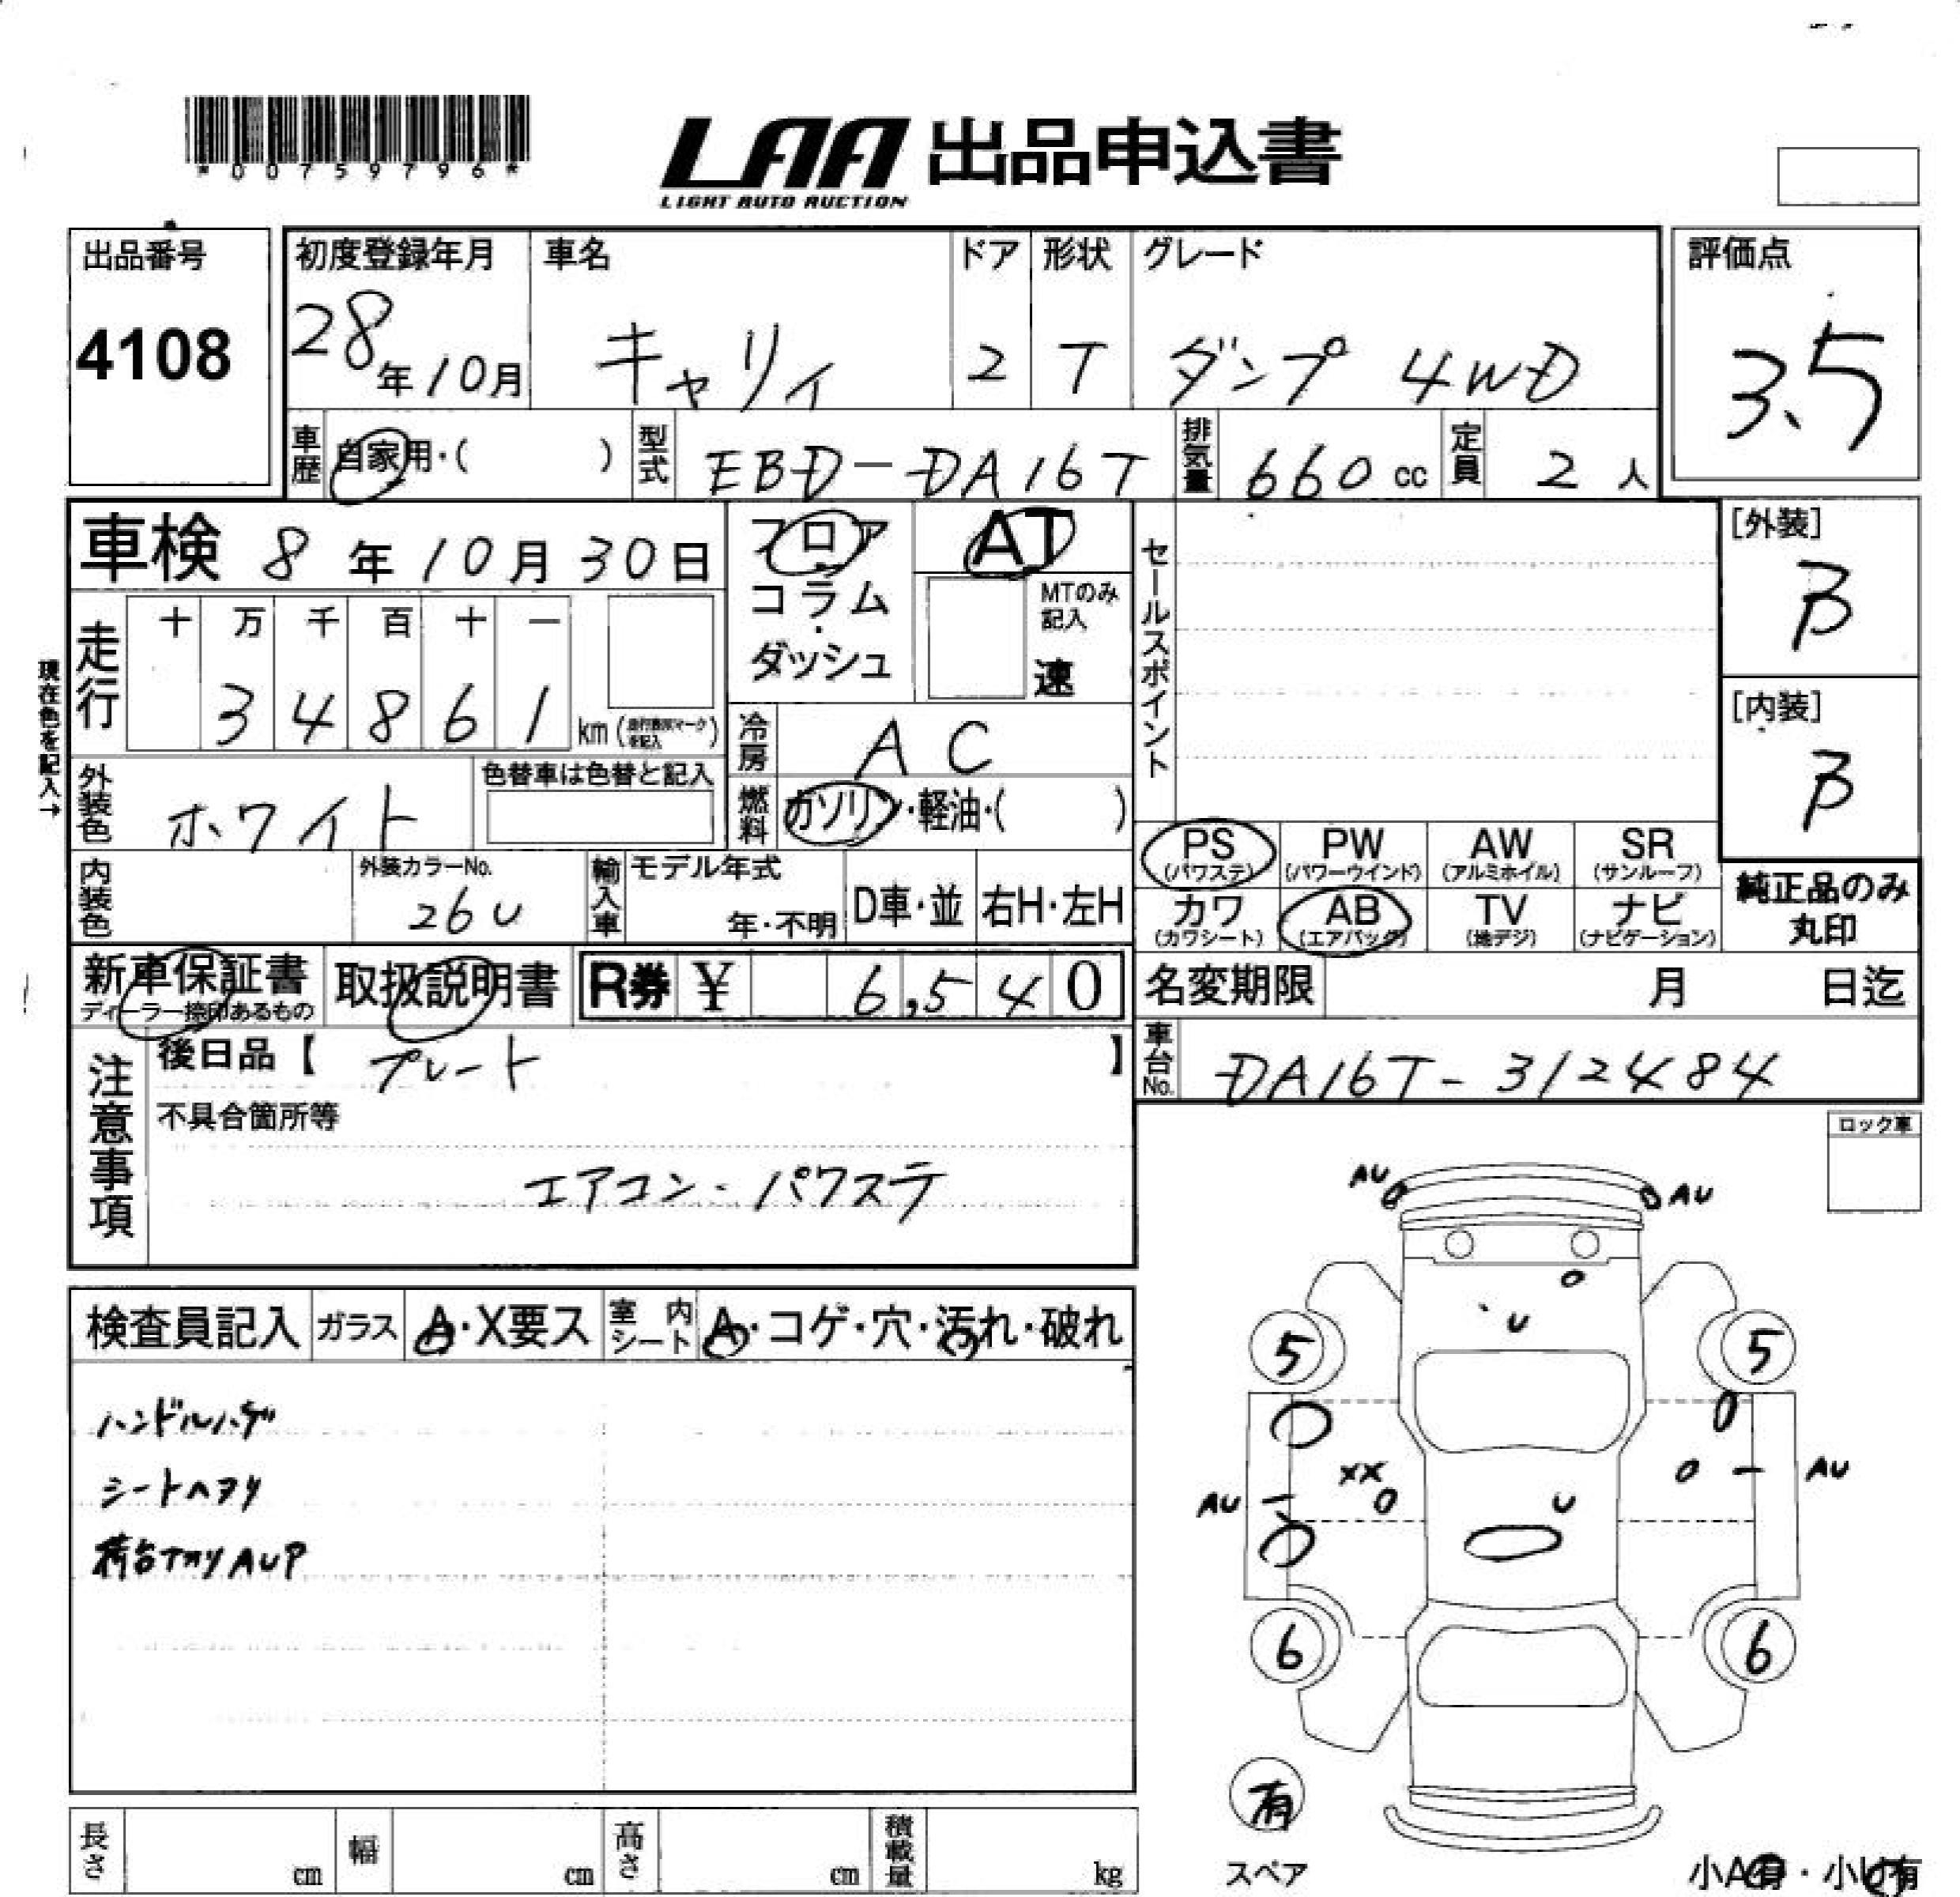 *00759796*
LAA 出品申込書
LIGHT AUTO AUCTION
出品番号
4108
初度登録年月
28年10月
車名
キャリイ
ドア
2
形状
T
グレード
ダンプ 4WD
評価点
3.5
車歴
自家用・( )
型式
EBD-DA16T
排気量
660 cc
定員
2 人
車検 8年10月30日
フロア
コラム
・
ダッシュ
AT
MTのみ
記入
速
セールスポイント
[外装]
B
[内装]
B
現在色を記入→
走行
十 万 千 百 十 一
3 4 8 6 1 km
冷房
AC
外装色
ホワイト
色替車は色替と記入
燃料
ガソリン・軽油・( )
内装色
外装カラーNo.
26U
輸入車
モデル年式
年・不明
D車・並
右H・左H
PS
(パワステ)
PW
(パワーウインド)
AW
(アルミホイル)
SR
(サンルーフ)
カワ
(カワシート)
AB
(エアバッグ)
TV
(地デジ)
ナビ
(ナビゲーション)
純正品のみ
丸印
新車保証書
ディーラー捺印あるもの
取扱説明書
R券 ¥ 6,540
名変期限 月 日迄
車台No.
DA16T-312484
注意事項
後日品【 プレート 】
不具合箇所等
エアコン・パワステ
ロック車
検査員記入
ガラス
A・X要ス
室内シート
A・コゲ・穴・汚れ・破れ
ハンドルハゲ
シートヘタリ
荷台ナカリAUP
AU
AU
U
5
5
XX
AU
AU
U
6
6
有
スペア
小A有・小U有
長さ cm
幅 cm
高さ cm
積載量 kg